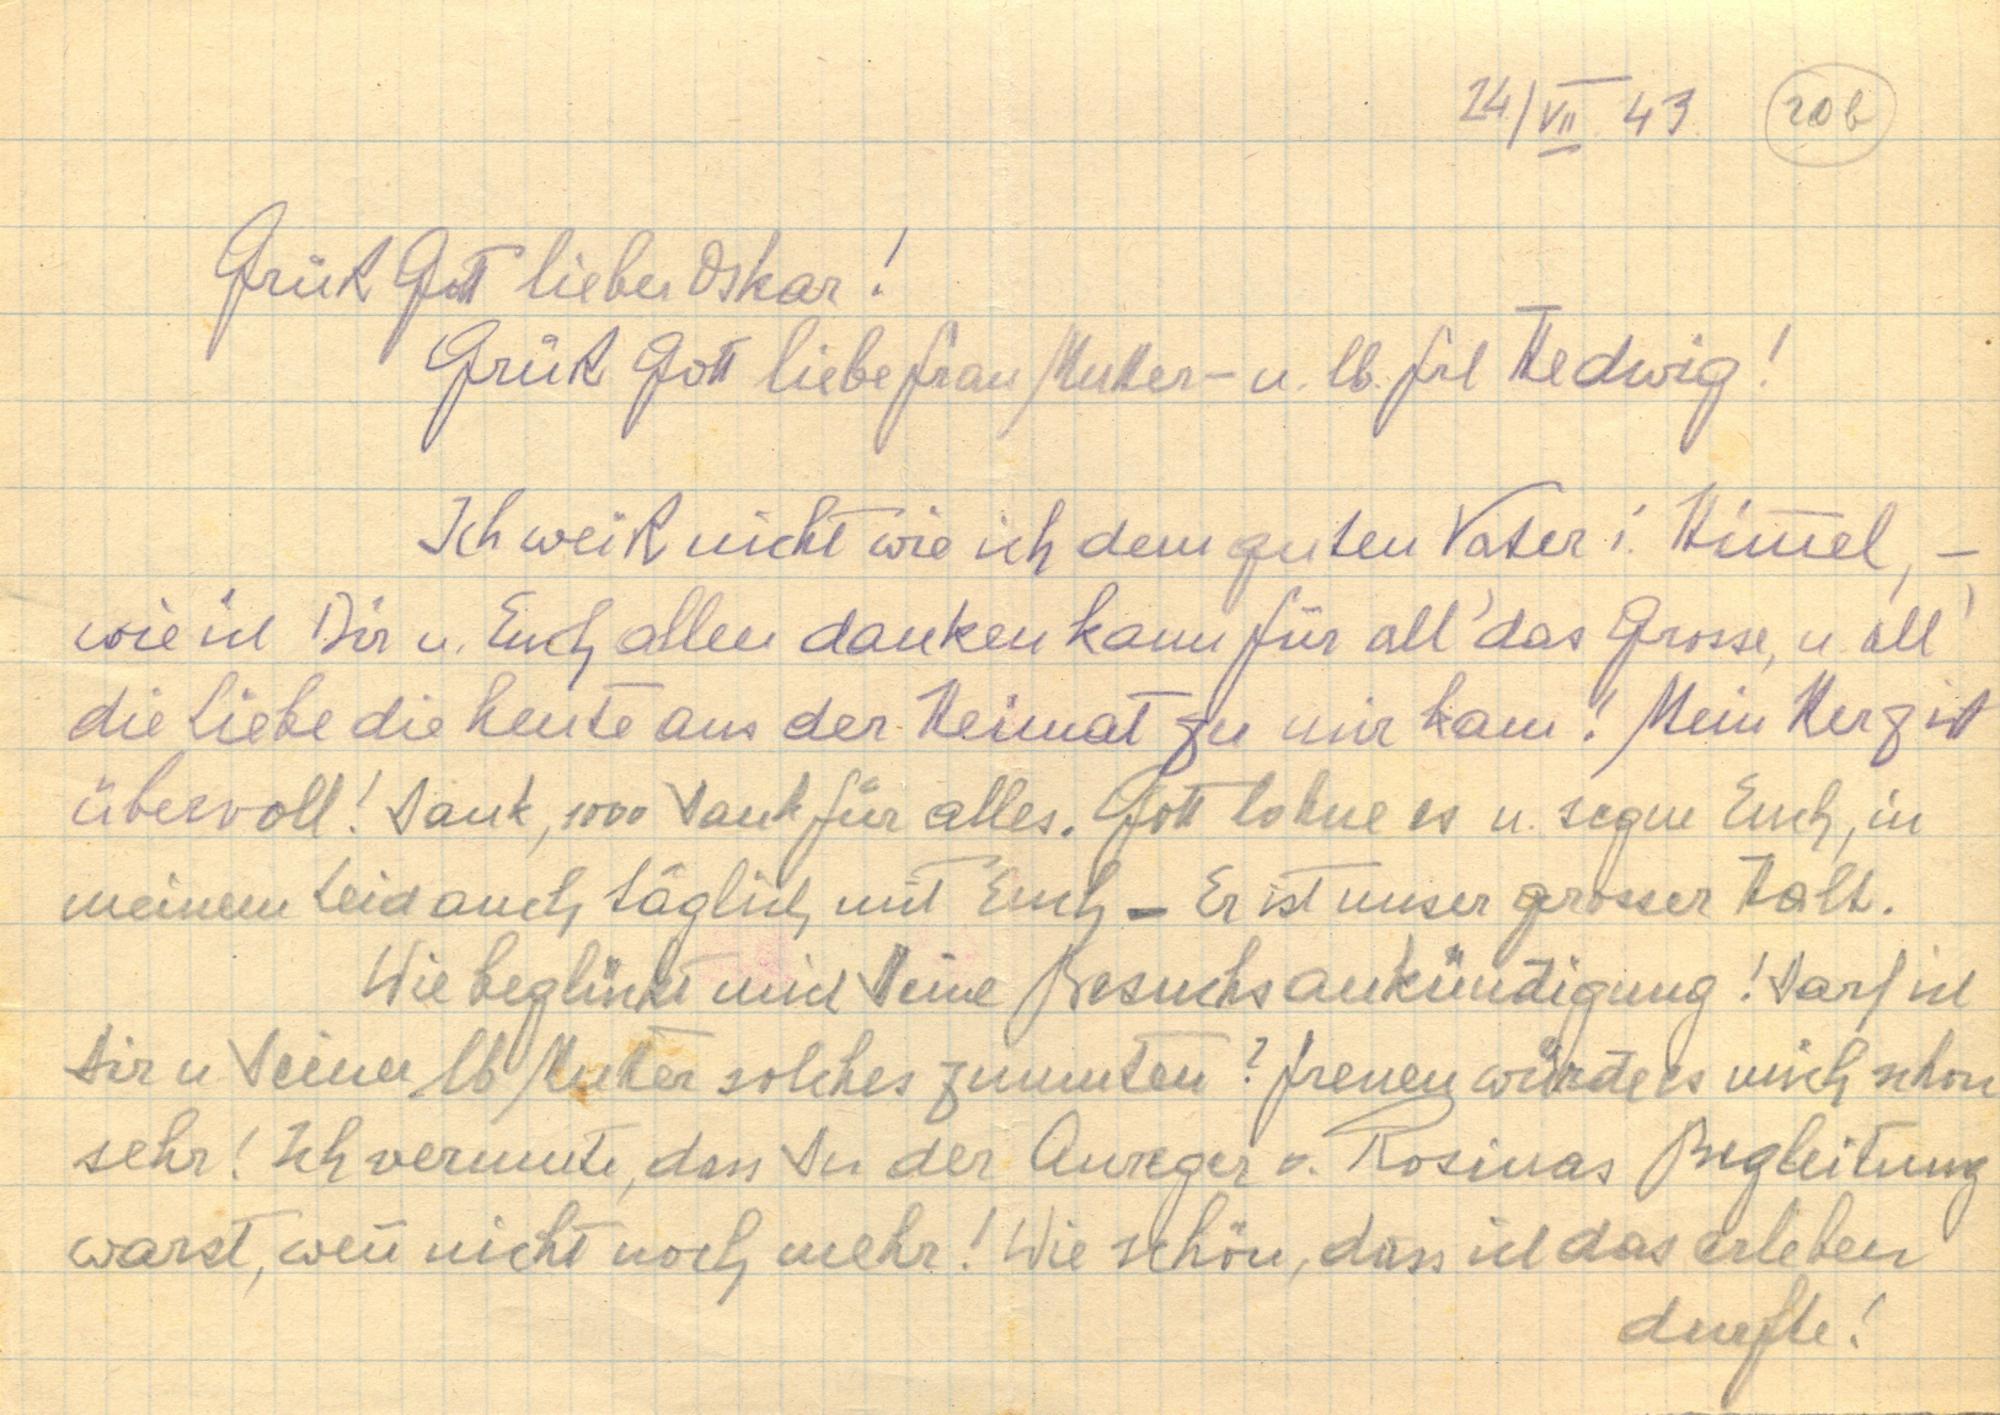 24/VII 43 20b
Grüß Gott lieber Oskar!
Grüß Gott liebe Frau Mutter- u. lb. Frl Hedwig!
Ich weiß nicht wie ich dem guten Vater i. Him̅el, –
wie ich Dir u. Euch allen danken kann für all' das Grosse, u. all'
die Liebe die heute aus der Heimat zu mir kam! Mein Herz ist
übervoll! Dank, 1000 Dank für alles. Gott lohne es u. segne Euch, in
meinem Leid auch täglich mit Euch – Er ist unser grosser Halt.
Wie beglückt mich Deine Besuchsankündigung! Darf ich
Dir u Deiner lb Mutter solches zumuten? Freuen würde es mich schon
sehr! Ich vermute, dass Du der Anreger v. Rosinas Begleitung
warst, wen̅ nicht noch mehr! Wie schön, dass ich das erleben
durfte!